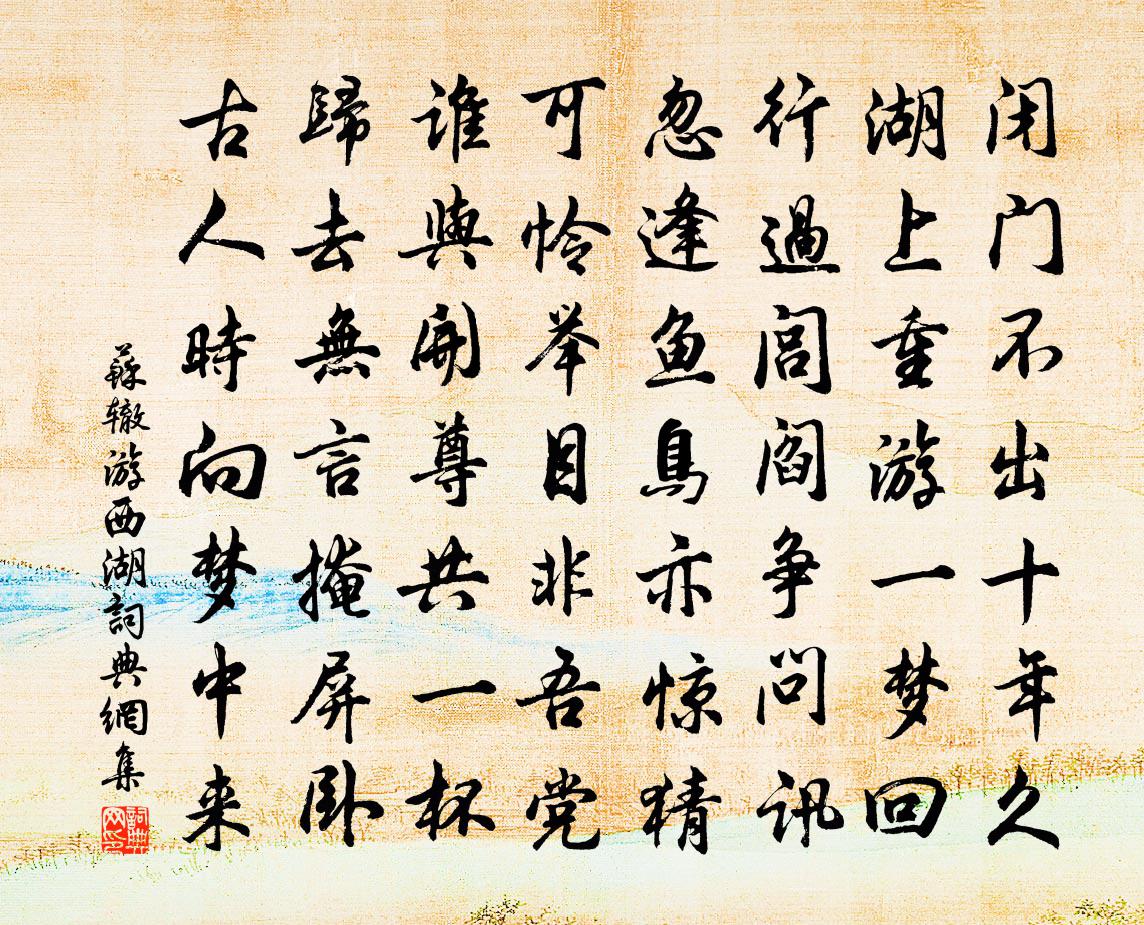 闭门不出十年久
湖上重游一梦回
行過闾阎争问讯
忽逢鱼鳥亦惊猜
可怜举目非吾党
谁與開尊共一杯
歸去無言掩屏卧
古人時向梦中来
蘇辙游西湖詞典網集
詞典网印